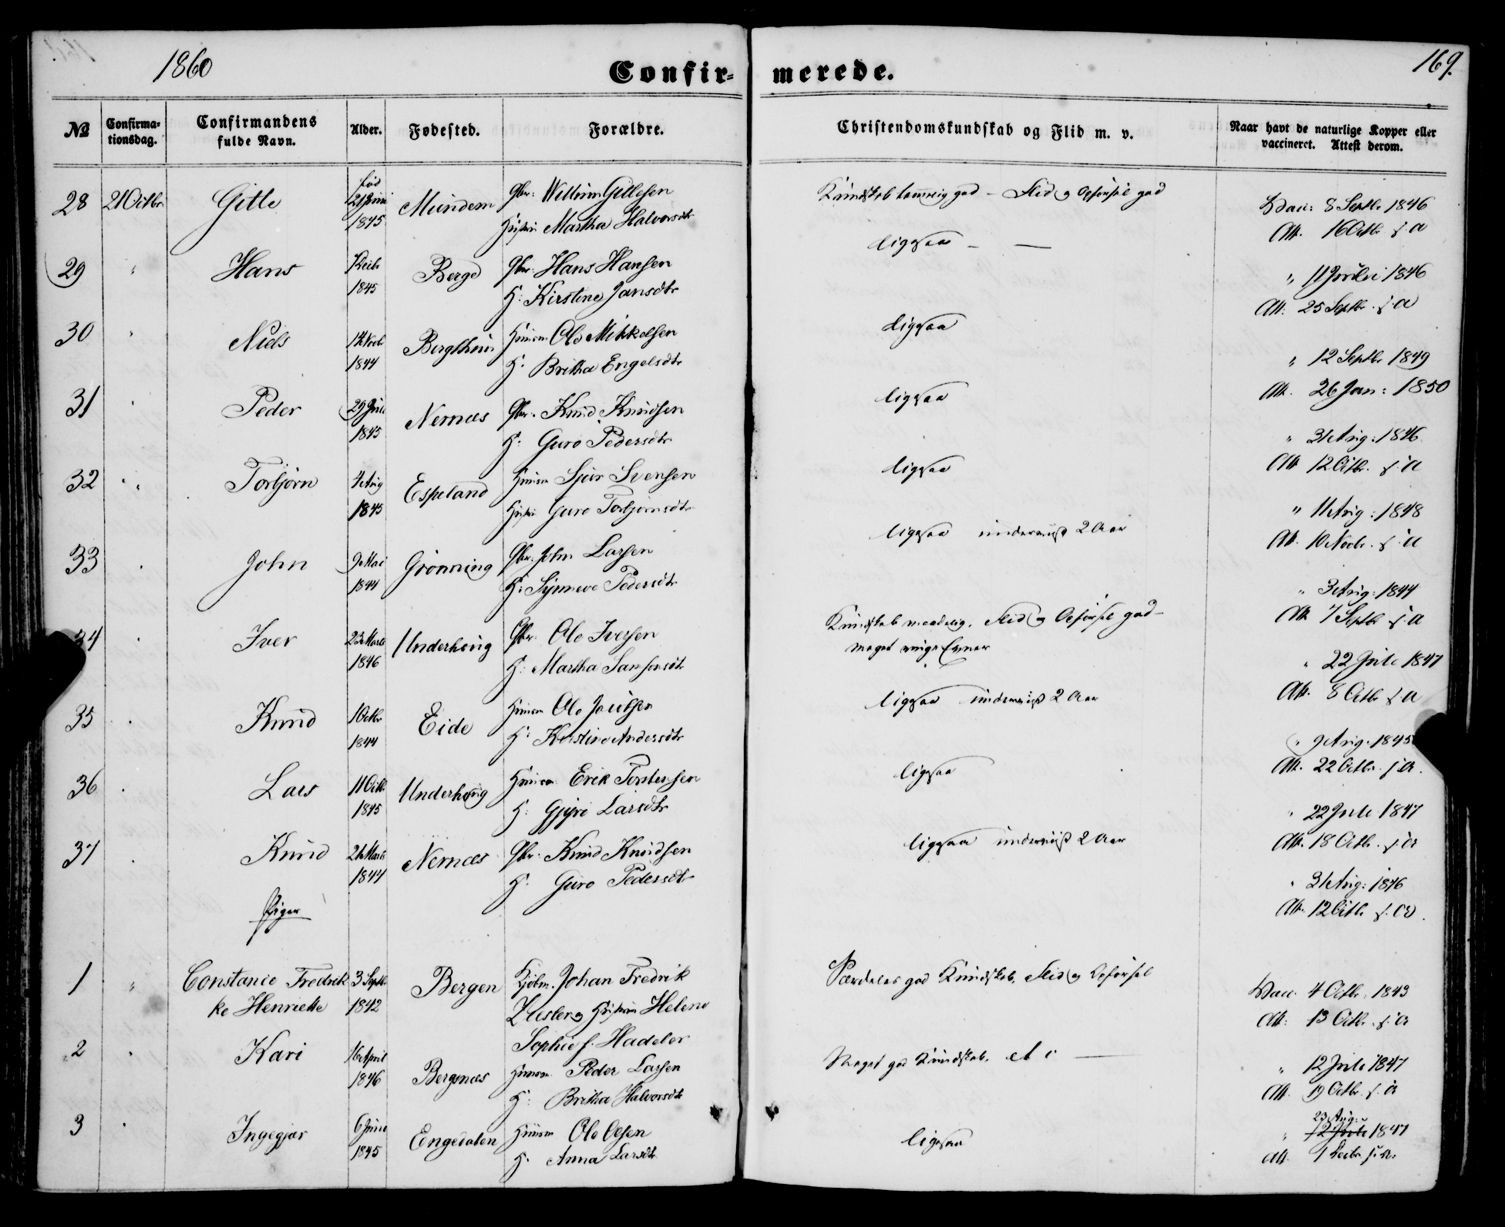 1860
Confir-
merede.
169.
No
Confirma-
tionsdag.
Confirmandens
fulde Navn.
Alder.
Fødested.
Forældre.
Christendomskundskab og Flid m. v.
Naar havt de naturlige Kopper eller
vaccineret. Attest derom.
28 21 Octbr Gitle
fød
1845
Mundem
Gbr. Willum Gitlesen
Martha Halvorsdtr
god - Flid og Opførsel god
Vacc: 8 Septbr 1846
Att. 16 Octbr s. a
29 " Hans
1845
Berge
Gbr. Hans Hansen
H: Kirstine Jansdtr
ligesaa
" 11 1846
Att. 25 Septbr. s. a
30 Niels
1844
Huusm. Ole Mikkelsen
H. Britha Engelsdtr
ligesaa
" 12 Septbr 1849
Att. 26 Jan: 1850
31 Peder
1845
Nernæs
Gbr. Knud Knudsen
H: Guro Pedersdtr
ligesaa
" 31 Aug: 1846
Att 12 Octbr. s. a
32 Torbjørn
4 Aug
1845
Espeland
Huusm Sjur Svensen
Guro Torbjørnsdtr
ligesaa
" 11 Aug: 1848
Att. 10 Novbr. s. a
33 John
9 Mai
1844
Grønning
Gbr. John Larsen
H: Synneve Pedersdtr
ligesaa underviist 2 Aar
" 3 Aug: 1844
Att. 7 Septbr s. a
34 Iver
1846
Underhoug
Gbr. Ole Iversen
H: Martha
Kundskab maadelig, Flid og Opførsel god -
meget ringe Evner
" 22 Juli 1847
Att. 8 Octbr s. a
35 Knud
1 Octbr
1844
Eide
Huusm Ole
H: Kirstine Andersdtr
ligesaa underviist 2 Aar
" 9 Aug: 1845
Att. 22 Octbr. s. a.
36 Lars
11 Octbr
1845
Underhoug
Huusm Erik Torstensen
H. Gjyri Larsdtr
ligesaa
" 22 Juli 1847
Att. 18 Octbr. s. a
37 Knud
1844
Nernæs
Gbr. Knud Knudsen
H. Guro Pedersdtr
ligesaa underviist 2 Aar
" 31 Aug: 1846
Att. 12 Octbr. s. a.
Piger
1 " Constance Fredrik
ke Henriette
3 Septbr
1842
Bergen
Kjøbm. Johan Fredrik
og Hustru Helene
Sophie f. Hadeler
Særdeles god Kundskab, Flid og Opførsel
Vacc. 4 Octbr. 1843
Att: 13 Octbr. s. a
2 Kari
16 April
1846
Bergsnæs
Huusm Peder Larsen
H: Britha Halvorsdtr
Meget god Kundskab,
" 12 Juli 1847
Att. 19 Octbr. s. a
3 Ingegjær
6 Juni
1845
Engedalen
Huusm Ole Olsen
H. Anna Larsdtr
ligesaa
23 Aug:
" 12 Juli 1847
Att. s. a.